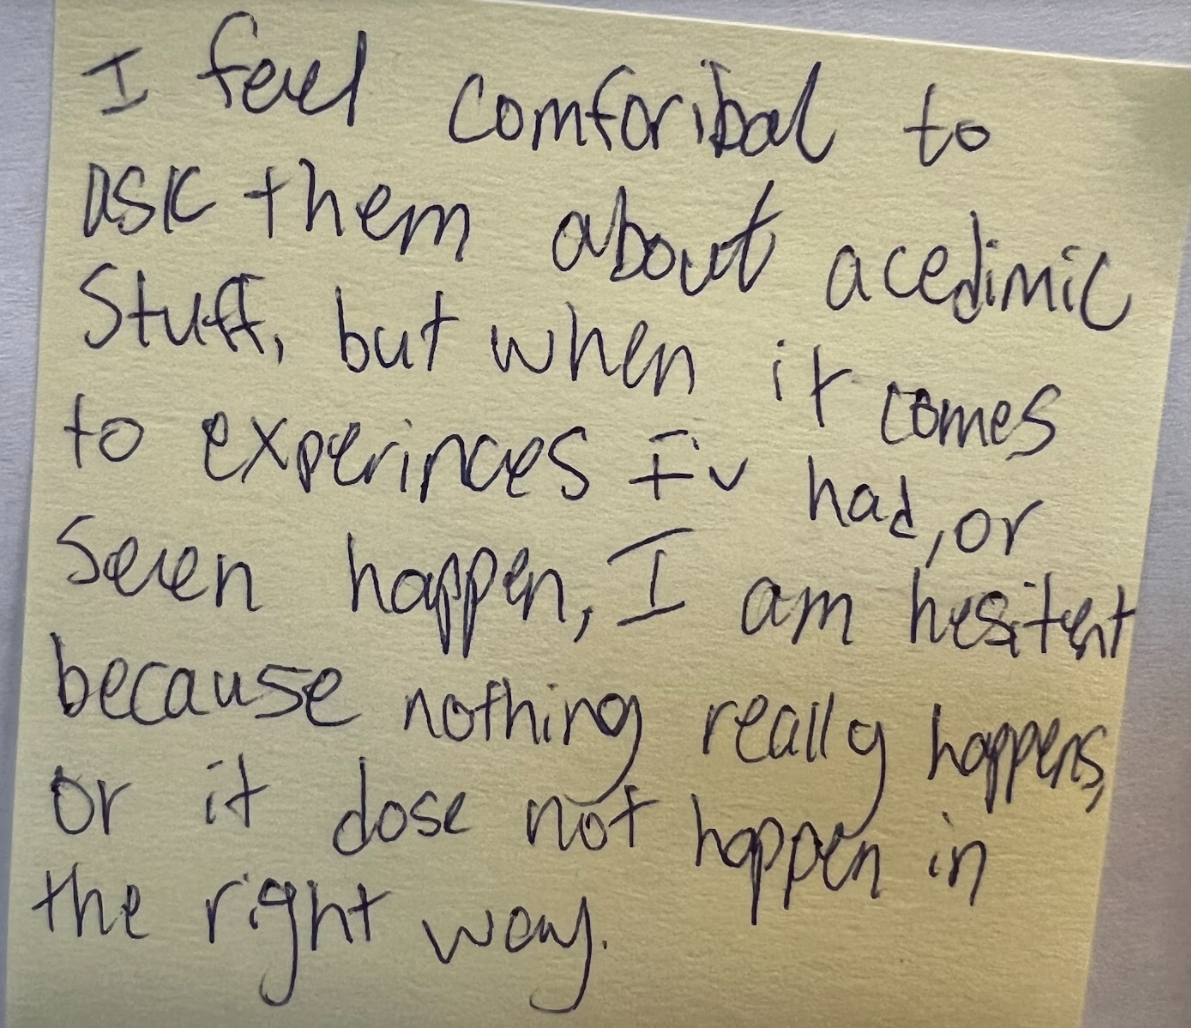 I feel comforibal to
ask them about acedimic
Stuff, but when it comes
to experinces I'v had, or
Seen happen, I am hesitent
because nothing really happens,
or it dose not happen in
the right way.